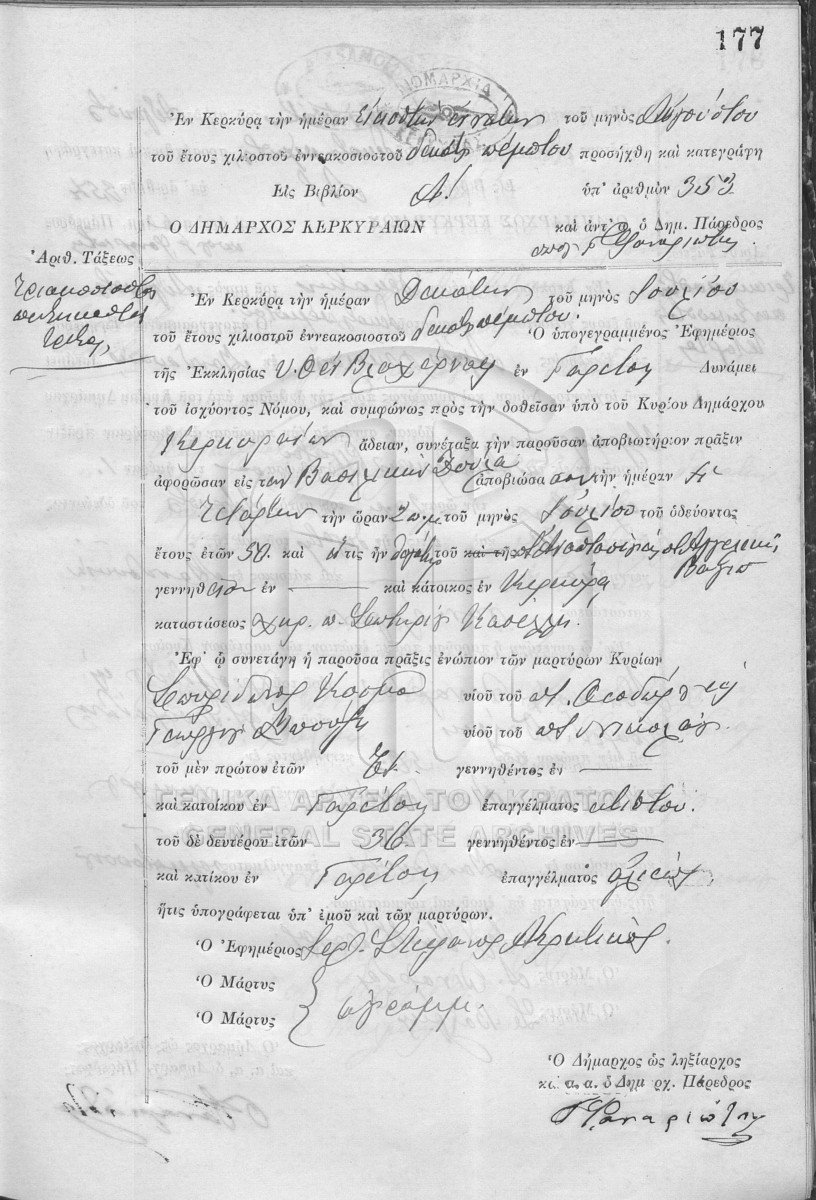 177
Ἐν Κερκύρᾳ τὴν ἡμέραν εἰκοστὴν ἐννάτην τοῦ μηνὸς Αὐγούστου
τοῦ ἔτους χιλιοστοῦ ἐννεακοσιοστοῦ δεκάτου πέμπτου προσήχθη καὶ κατεγράφη
Εἰς Βιβλίον Α! ὑπ' ἀριθμὸν 353
Ο ΔΗΜΑΡΧΟΣ ΚΕΡΚΥΡΑΙΩΝ καὶ ἀντ' α. ὁ Δημ. Πάρεδρος
Φαναριώτης
Ἀριθ. Τάξεως
Τριακοσιοστὸς
πεντηκοστὸς
τρίτος
Ἐν Κερκύρᾳ τὴν ἡμέραν Δεκάτην τοῦ μηνὸς Ἰουλίου
τοῦ ἔτους χιλιοστοῦ ἐννεακοσιοστοῦ δεκάτου πέμπτου. Ὁ ὑπογεγραμμένος Ἐφημέριος
τῆς Ἐκκλησίας Υ. Θ. Βλαχέρνας ἐν Γαρίτσῃ Δυνάμει
τοῦ ἰσχύοντος Νόμου, καὶ συμφώνως πρὸς τὴν δοθεῖσαν ὑπὸ τοῦ Κυρίου Δημάρχου
Κερκυραίων ἄδειαν, συνέταξα τὴν παροῦσαν ἀποβιωτήριον πρᾶξιν
ἀφορῶσαν εἰς τὴν Βασιλικὴν ἀποβιώσασαν τὴν ἡμέραν
Τετάρτην τὴν ὥραν 2 π.μ. τοῦ μηνὸς Ἰουλίου τοῦ ὁδεύοντος
ἔτους ἐτῶν 50. καὶ ἥτις ἦν θυγάτηρ τοῦ καὶ τῆς Ἀγγελικῆς
γεννηθεῖσα ἐν — καὶ κάτοικος ἐν Κερκύρᾳ
καταστάσεως χηρ. π. Σωτηρίου
Ἐφ' ᾧ συνετάγη ἡ παροῦσα πρᾶξις ἐνώπιον τῶν μαρτύρων Κυρίων
Σπυρίδωνος Κοσμᾶ υἱοῦ τοῦ π. Θεοδώρου
Γεωργίου υἱοῦ τοῦ π. Νικολάου
τοῦ μὲν πρώτου ἐτῶν γεννηθέντος ἐν —
καὶ κατοίκου ἐν Γαρίτσῃ ἐπαγγέλματος κτίστου.
τοῦ δὲ δευτέρου ἐτῶν 36 γεννηθέντος ἐν —
καὶ κατίκου ἐν Γαρίτσῃ ἐπαγγέλματος ἁλιέως
ἥτις ὑπογράφεται ὑπ' ἐμοῦ καὶ τῶν μαρτύρων.
Ὁ Ἐφημέριος Στέφανος
Ὁ Μάρτυς
Ὁ Μάρτυς ἀγράμμ.
Ὁ Δήμαρχος ὡς ληξίαρχος
κα α. α. ὁ Δημ ρχ. Πάρεδρος
Γ Φαναριώτης
ΓΕΝΙΚΑ ΑΡΧΕΙΑ ΤΟΥ ΚΡΑΤΟΥΣ
GENERAL STATE ARCHIVES